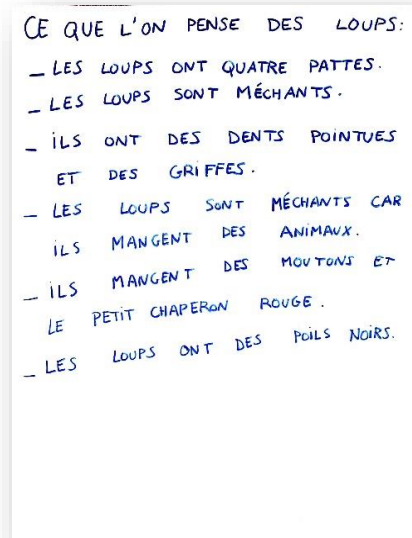 CE QUE L'ON PENSE DES LOUPS:
_ LES LOUPS ONT QUATRE PATTES.
_ LES LOUPS SONT MÉCHANTS.
_ ILS ONT DES DENTS POINTUES
ET DES GRIFFES.
_ LES LOUPS SONT MÉCHANTS CAR
ILS MANGENT DES ANIMAUX.
_ ILS MANGENT DES MOUTONS ET
LE PETIT CHAPERON ROUGE.
_ LES LOUPS ONT DES POILS NOIRS.